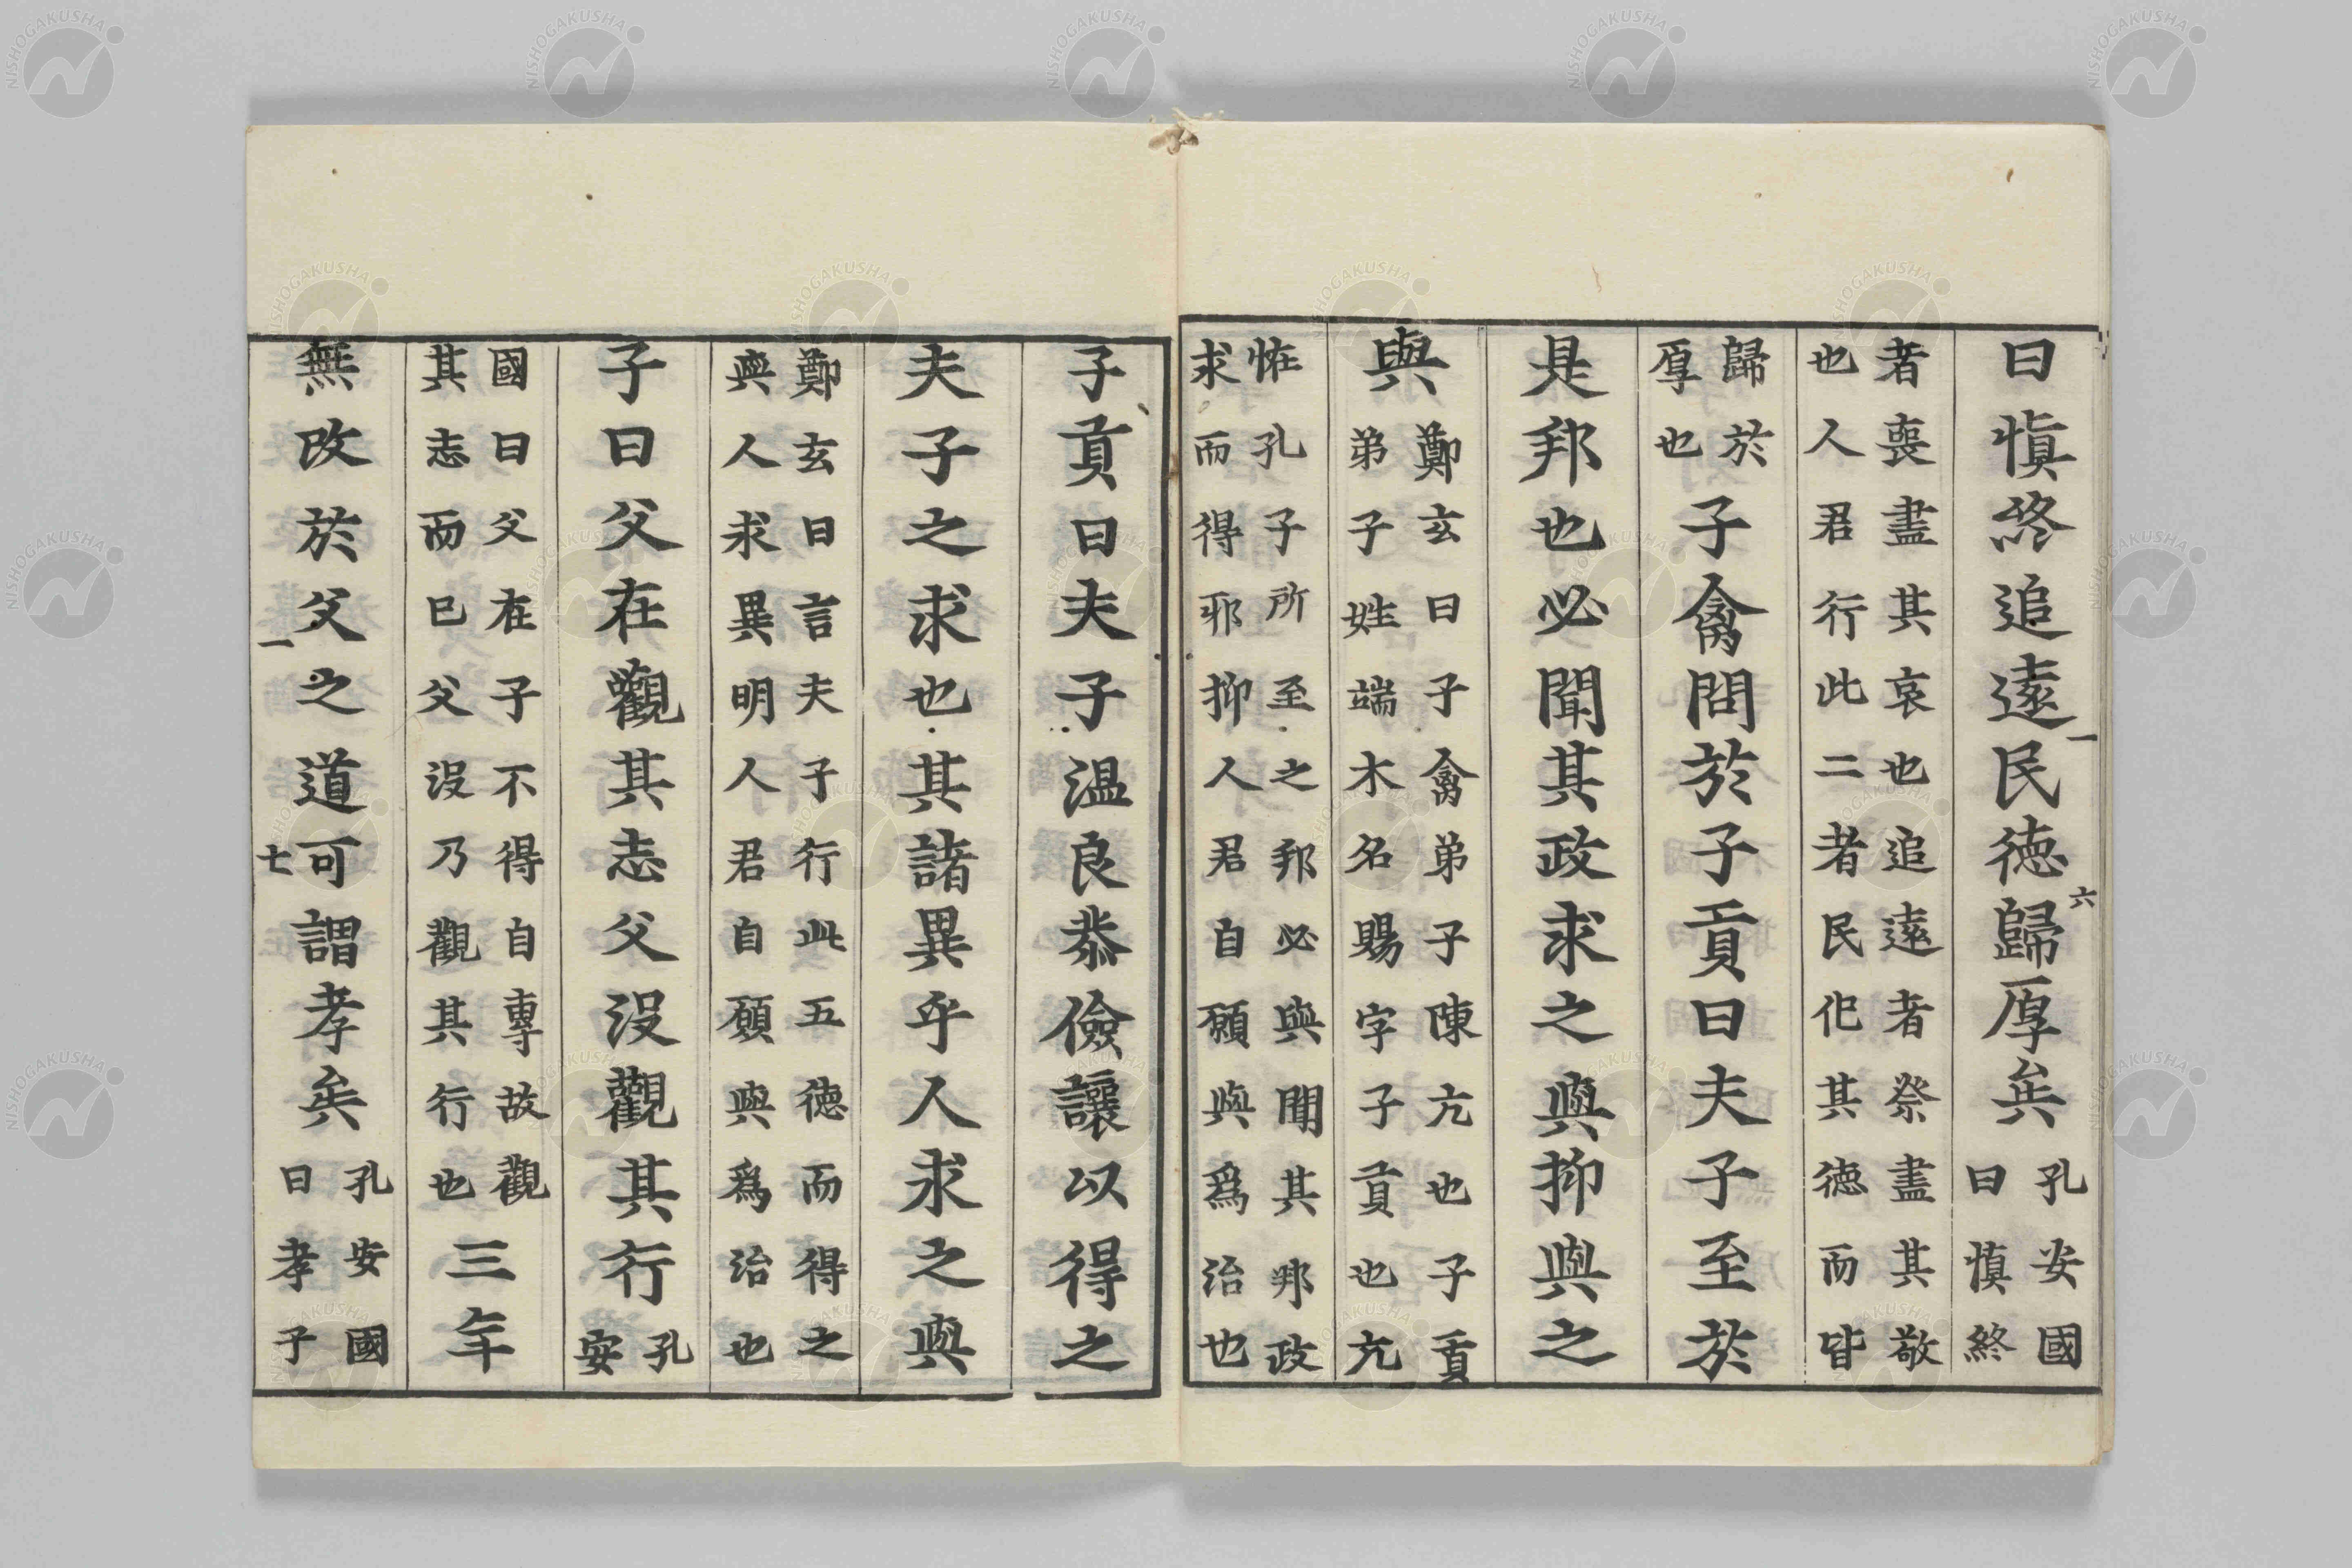 曰慎終追遠民德歸厚矣孔安國
曰慎終
者喪盡其哀也追遠者祭盡其敬
也人君行此二者民化其德而皆
歸於
厚也子禽問於子貢曰夫子至於
是邦也必聞其政求之與抑與之
與鄭玄曰子禽弟子陳亢也子貢
弟子姓端木名賜字子貢也亢
恠孔子所至之邦必與聞其邦政
求而得耶抑人君自願與爲治也
一
六
子貢曰夫子温良恭儉讓以得之
夫子之求也其諸異乎人求之與
鄭玄曰言夫子行此五德而得之
與人求異明人君自願與爲治也
子曰父在觀其志父没觀其行孔
安
國曰父在子不得自專故觀
其志而已父没乃觀其行也三年
無改於父之道可謂孝矣孔安國
曰孝子
一
七
NISHOGAKUSHA
NISHOGAKUSHA
NISHOGAKUSHA
NISHOGAKUSHA
NISHOGAKUSHA